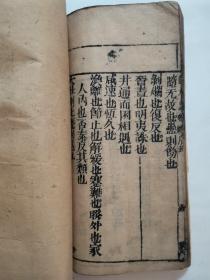 隨无故也蠱則飭也
剝爛也復反也
晉晝也明夷誅也
井通而困相遇也
咸速也恆久也
渙離也節止也解緩也蹇難也睽外也家
人內也否泰反其類也